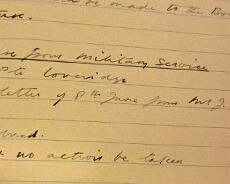 be made to the
from military service
Loveridge
letter of 8th June from Mr J.
no action be taken